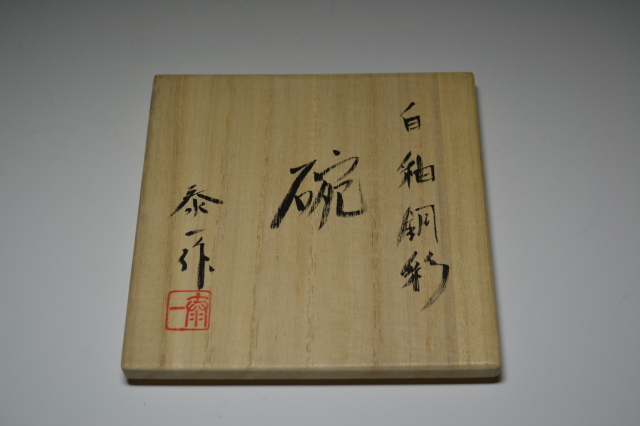 白釉銅彩
碗
泰一作
泰一